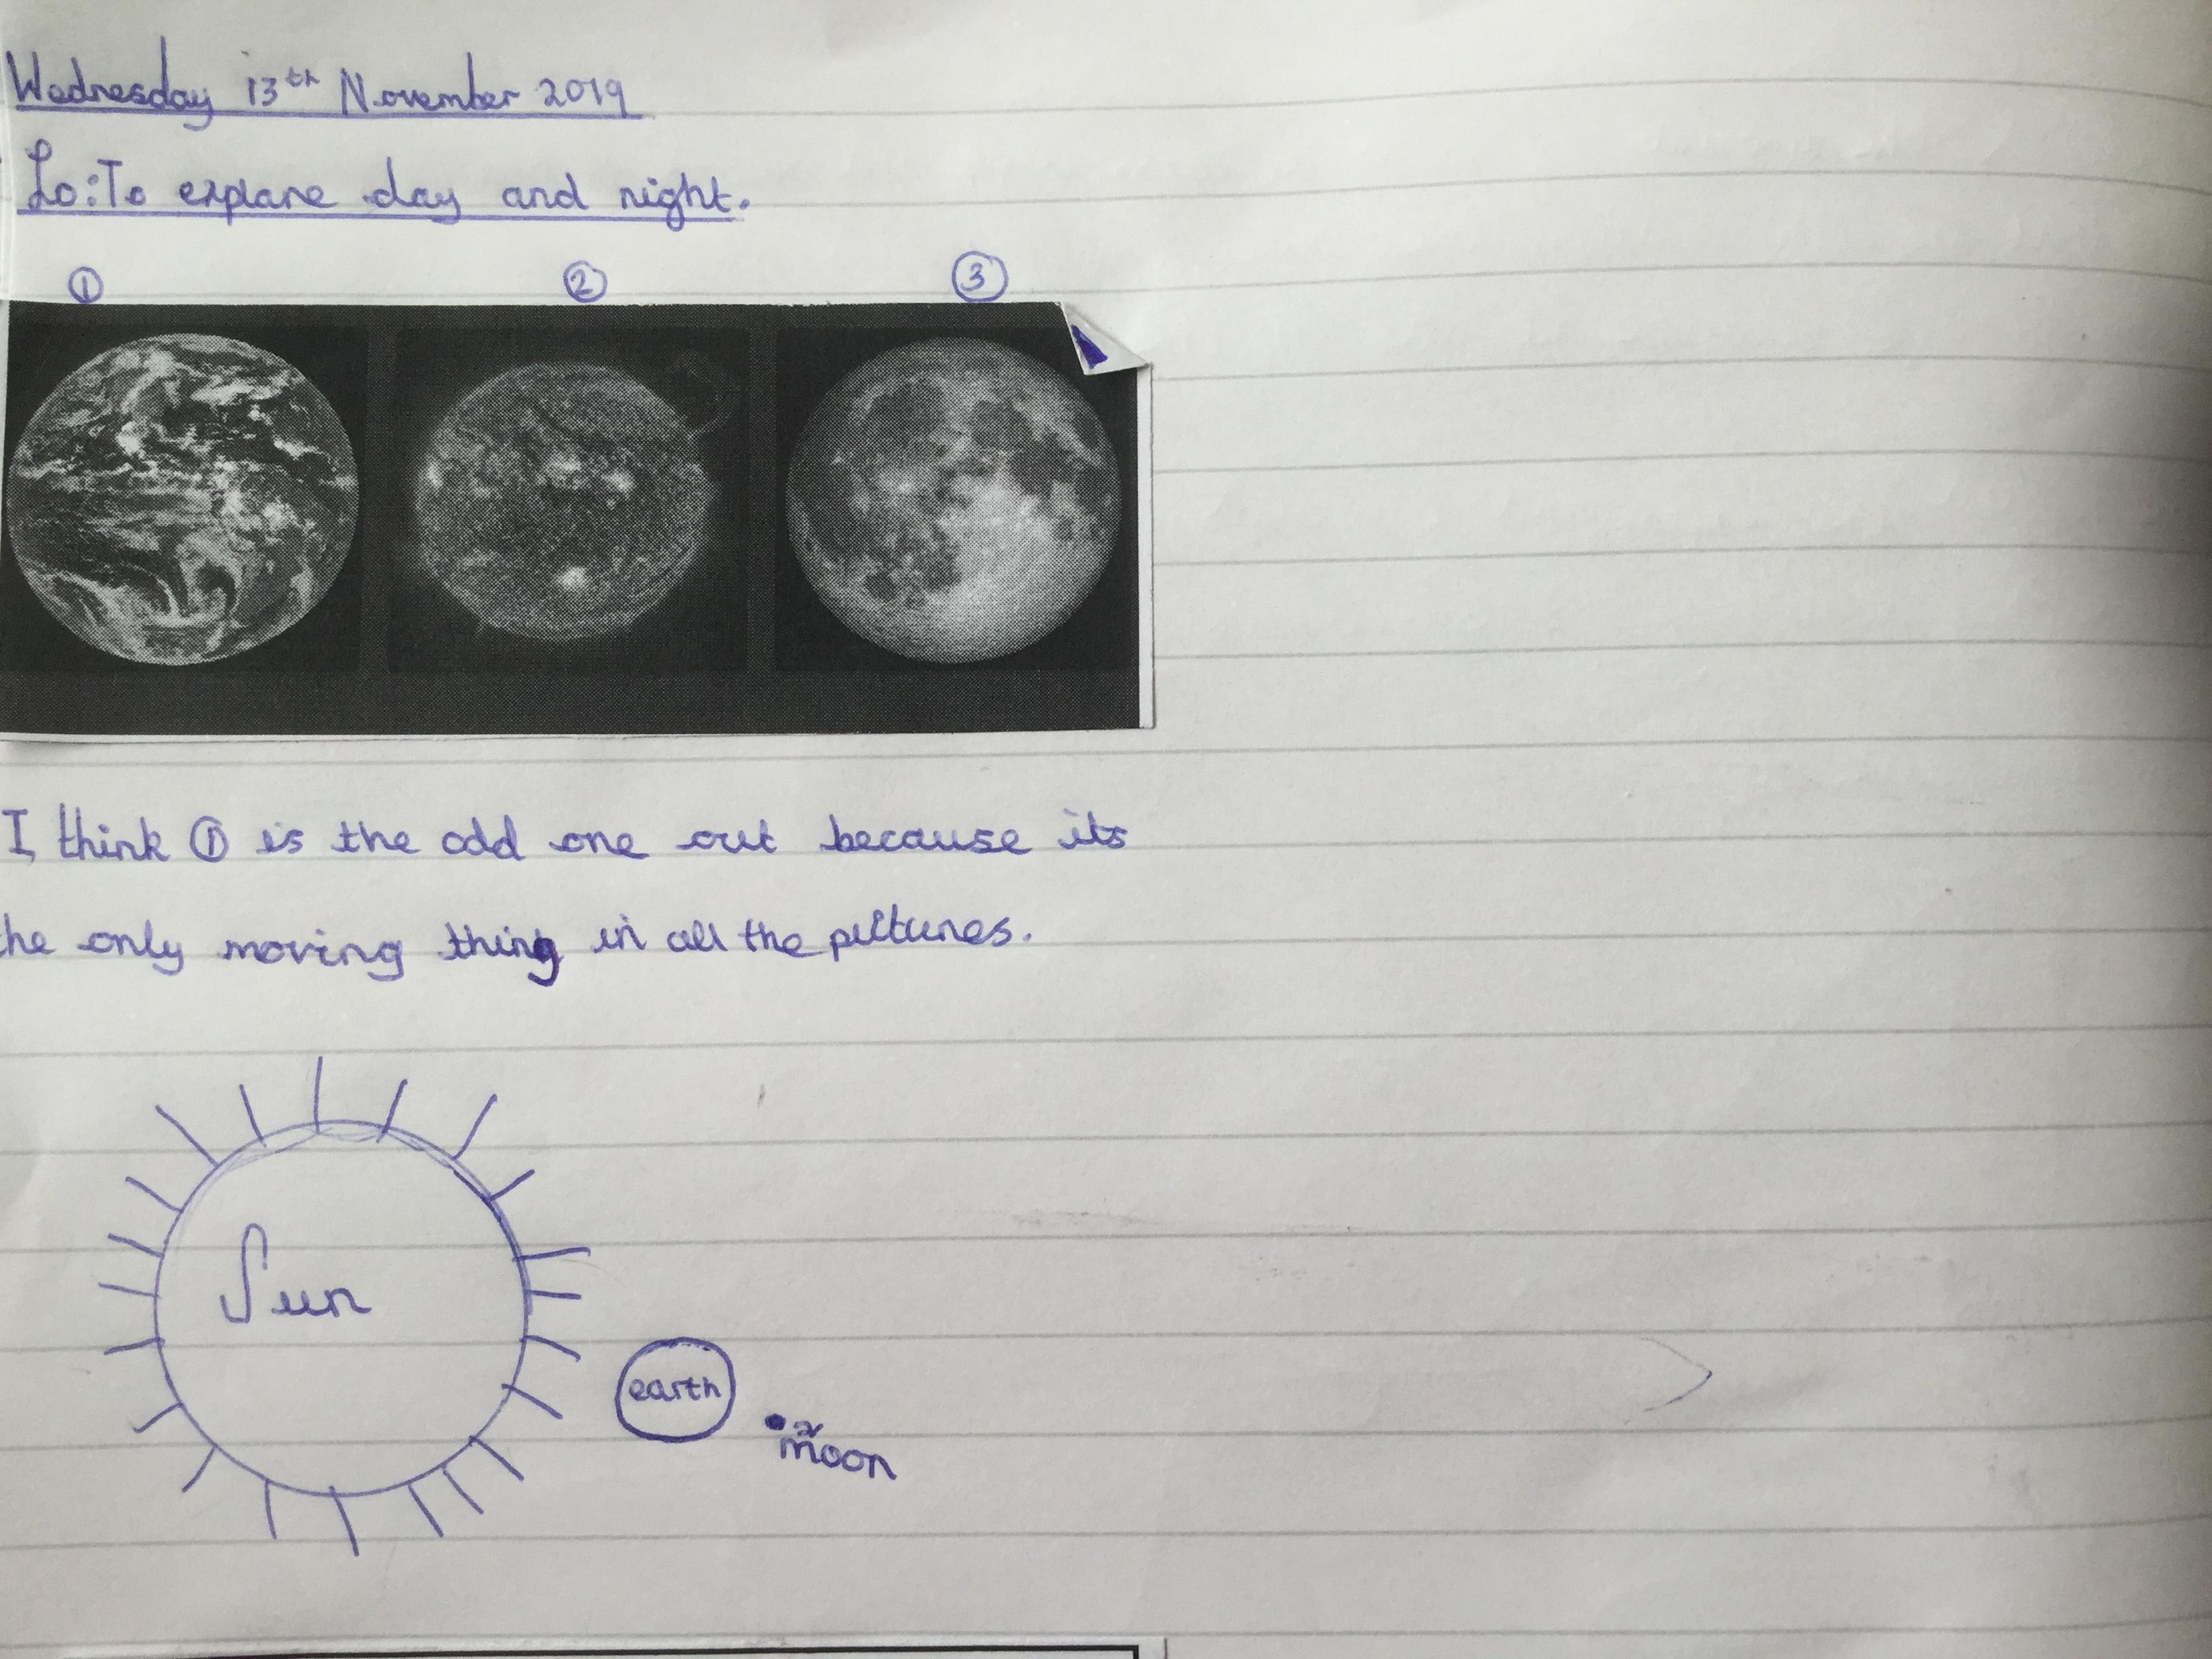 Wednesday 13th November 2019
Lo: To explane day and night.
① ② ③
I think ① is the odd one out because its
the only moving thing in all the pictures.
Sun
earth
moon